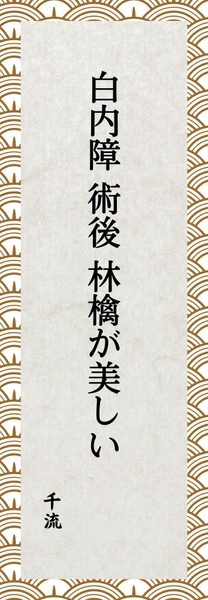 白内障 術後 林檎が美しい
千流